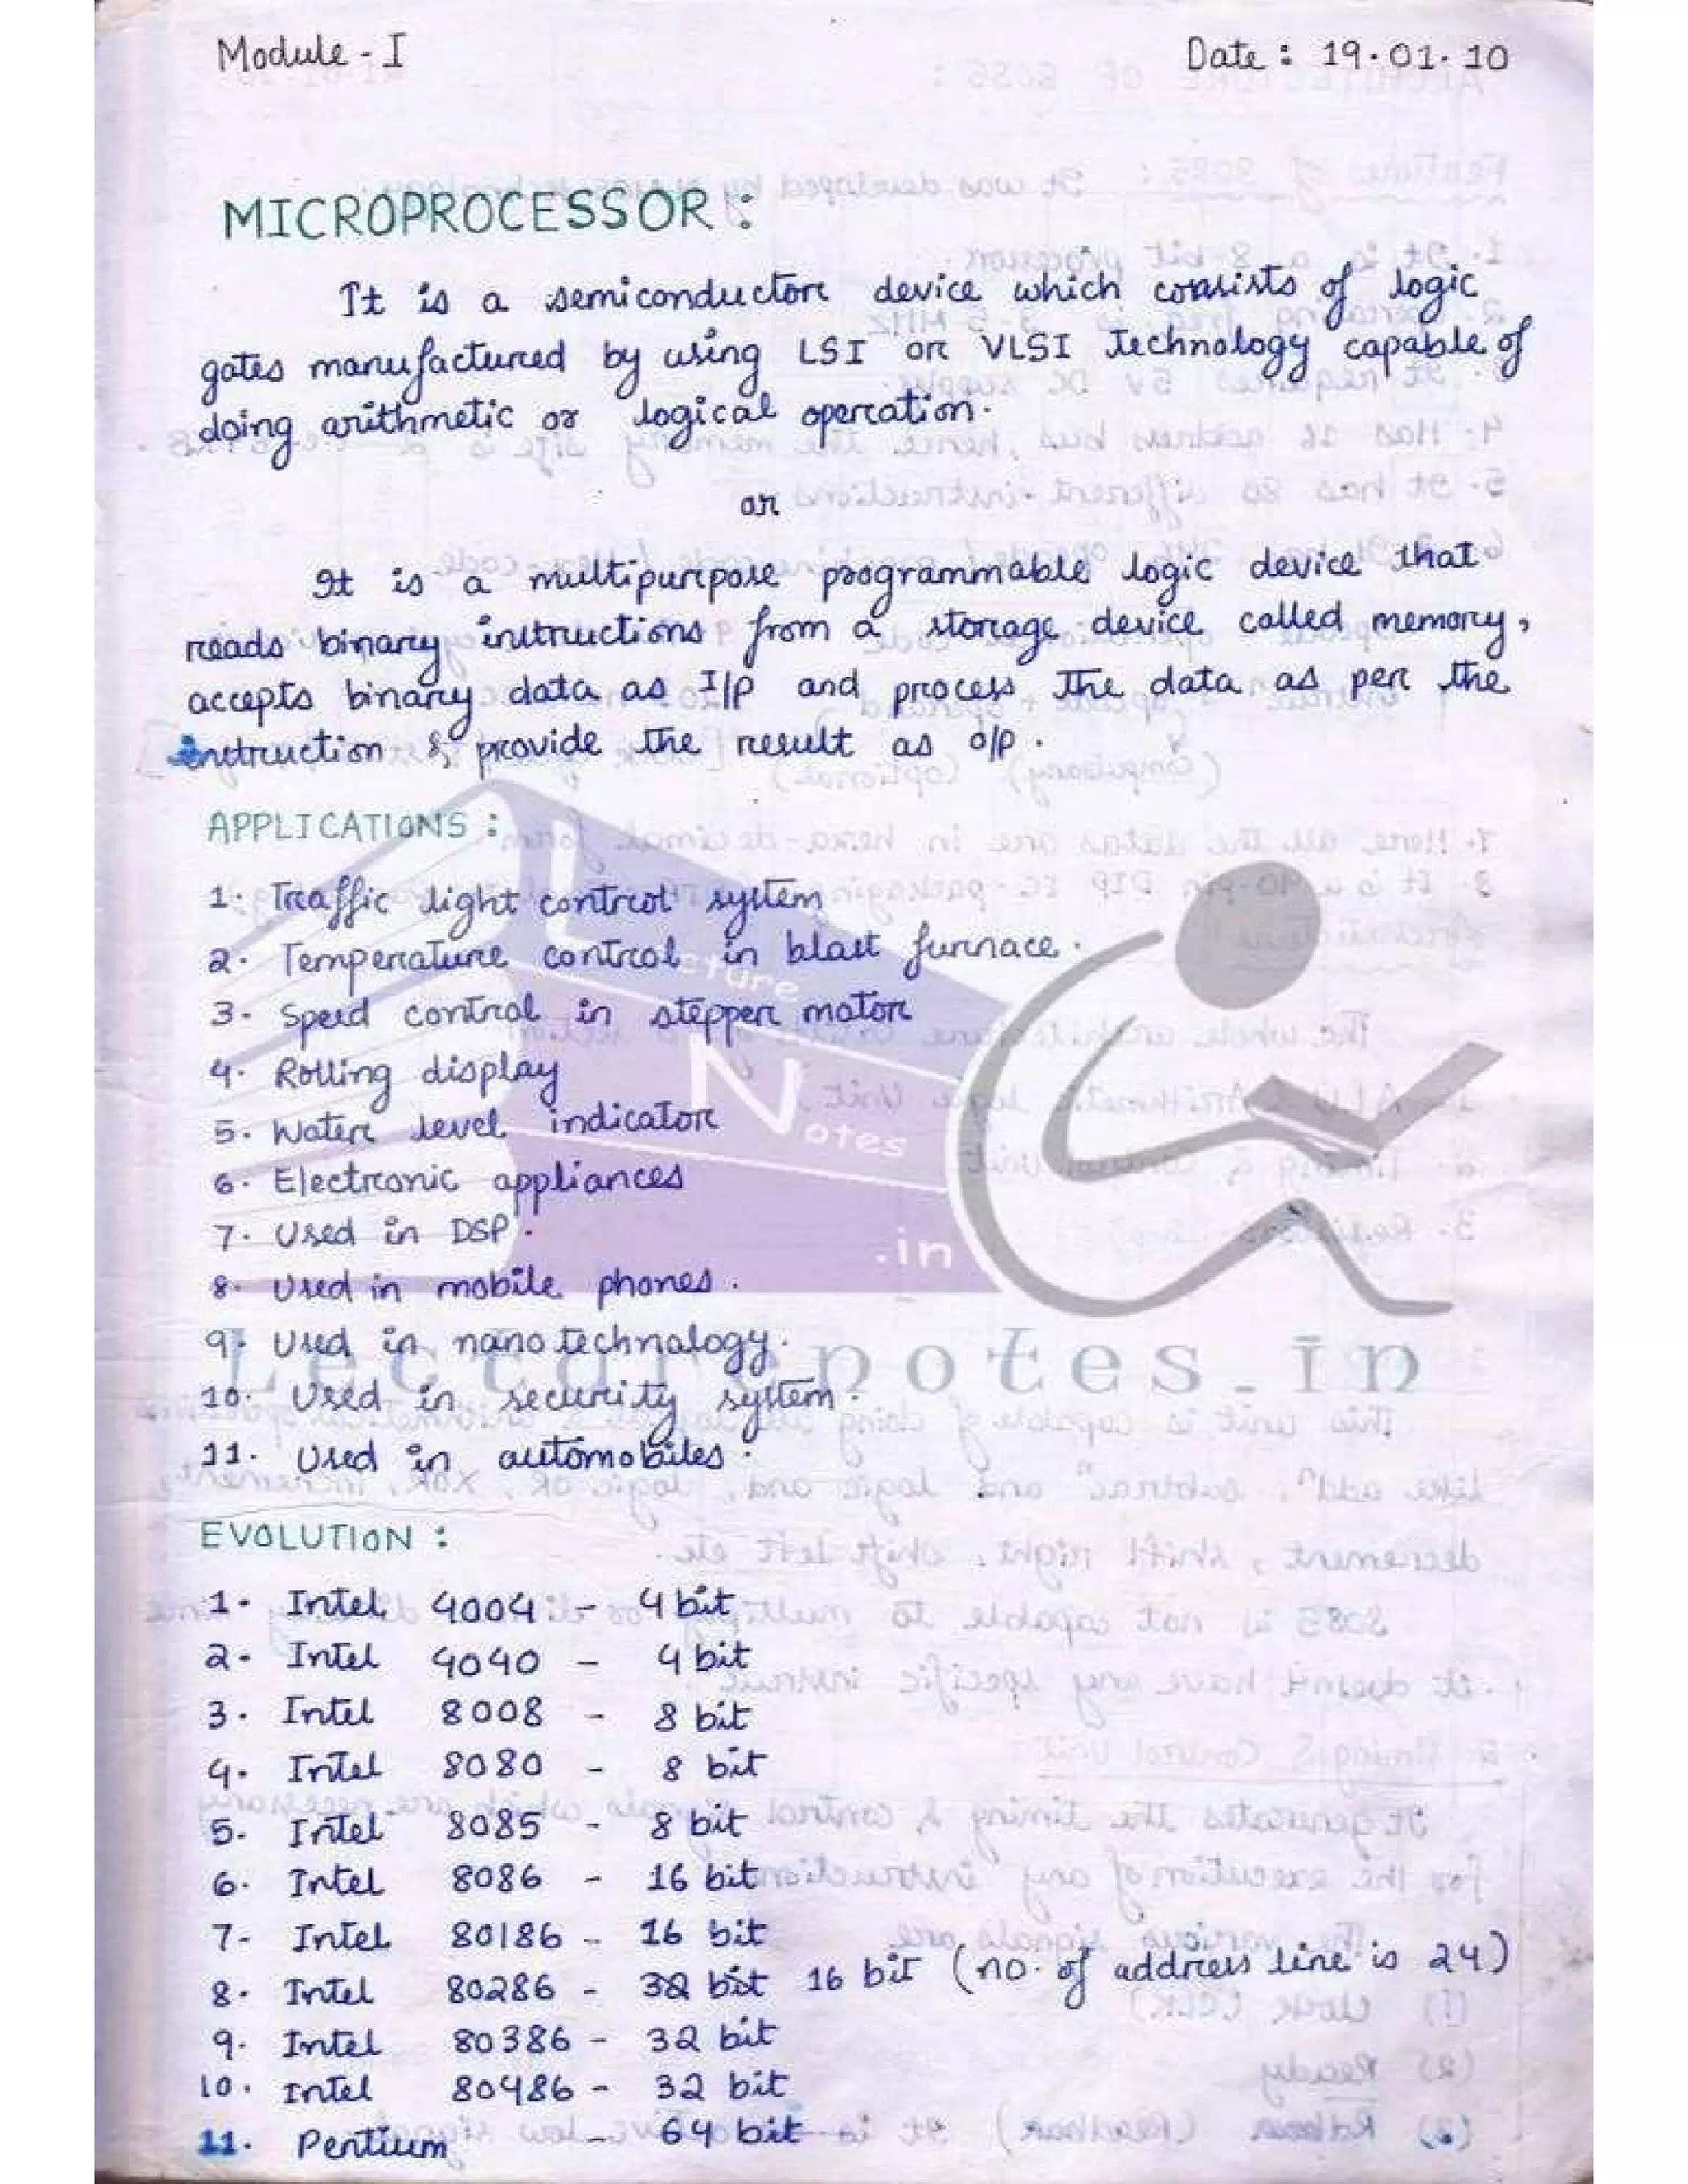 Module - I Date : 19.01.10
MICROPROCESSOR :
It is a semiconductor device which consists of logic
gates manufactured by using LSI or VLSI Technology capable of
doing arithmetic or logical operation.
or
It is a multipurpose programmable logic device that
reads binary instructions from a storage device called memory,
accepts binary data as I/p and process the data as per the
instruction & provide the result as o/p.
APPLICATIONS :
1. Traffic light control system
2. Temperature control in blast furnace.
3. Speed control in stepper motor
4. Rolling display
5. Water level indicator
6. Electronic appliances
7. Used in DSP.
8. Used in mobile phones.
9. Used in nano technology.
10. Used in security system.
11. Used in automobiles.
EVOLUTION :
1. Intel 4004 - 4 bit
2. Intel 4040 - 4 bit
3. Intel 8008 - 8 bit
4. Intel 8080 - 8 bit
5. Intel 8085 - 8 bit
6. Intel 8086 - 16 bit
7. Intel 80186 - 16 bit
8. Intel 80286 - 32 bit 16 bit (no. of address line is 24)
9. Intel 80386 - 32 bit
10. Intel 80486 - 32 bit
11. Pentium - 64 bit
Lecture
Notes
.in
Lecturenotes.in